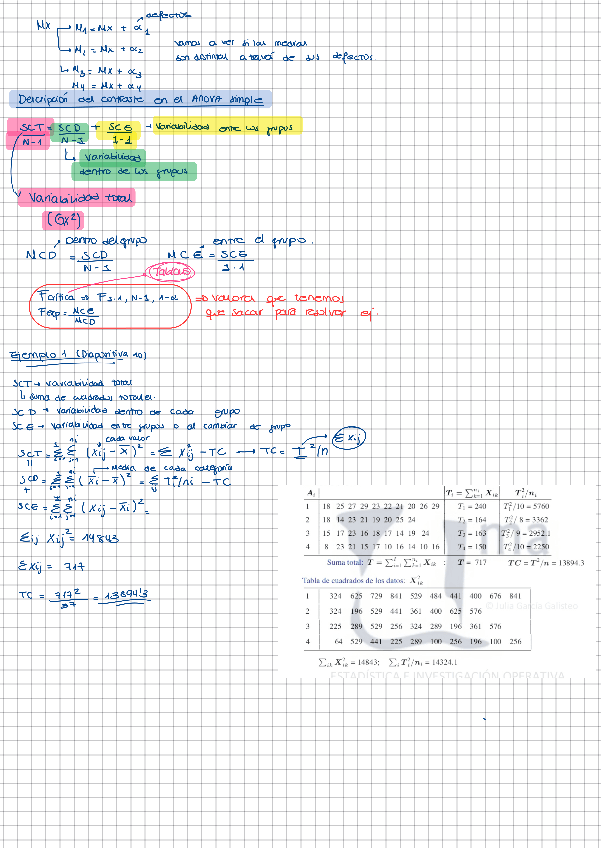 μx → μ1 = μx + α1 → defectos
μ2 = μx + α2
vamos a ver si las medias
son distintas a través de sus defectos.
↳ μ3 = μx + α3
μ4 = μx + α4
Descripción del contraste en el ANOVA simple
SCT/N-1 = SCD/N-I + SCE/I-1 → Variabilidad entre los grupos
↳ Variabilidad
dentro de los grupos
Variabilidad total
(σx²)
MCD = SCD/N-I → Dentro del grupo
MCE = SCE/I-1 → entre el grupo.
(Tablas)
Fcrítica ⇒ F I-1, N-I, 1-α
Fexp = MCE/MCD
⇒ Valores que tenemos
que sacar para resolver ej.
Ejemplo 1 (Diapositiva 10)
SCT → variabilidad total
↳ suma de cuadrados totales.
SCD → variabilidad dentro de cada grupo
SCE → Variabilidad entre grupos o al cambiar de grupo
cada valor
SCT = Σ Σ (Xij - X̄)² = Σ Xij² - TC → TC = T²/n → Σ Xij
Media de cada categoría
SCD = Σ Σ (X̄i - X̄)² = Σ Ti²/ni - TC
+
SCE = Σ Σ (Xij - X̄i)² =
Σij Xij² = 14843
Σ Xij = 717
TC = 717²/37 = 13894'3
Ai Ti = Σ Xik Ti²/ni
1 18 25 27 29 23 22 21 20 26 29 T1 = 240 T1²/10 = 5760
2 18 14 23 21 19 20 25 24 T2 = 164 T2²/8 = 3362
3 15 17 23 16 18 17 14 19 24 T3 = 163 T3²/9 = 2952.1
4 8 23 21 15 17 10 16 14 10 16 T4 = 150 T4²/10 = 2250
Suma total: T = Σ Σ Xik : T = 717 TC = T²/n = 13894.3
Tabla de cuadrados de los datos: X²ik
1 324 625 729 841 529 484 441 400 676 841
© Julia García Galisteo
2 324 196 529 441 361 400 625 576
3 225 289 529 256 324 289 196 361 576
4 64 529 441 225 289 100 256 196 100 256
Σik X²ik = 14843; Σi Ti²/ni = 14324.1
ESTADÍSTICA E INVESTIGACIÓN OPERATIVA